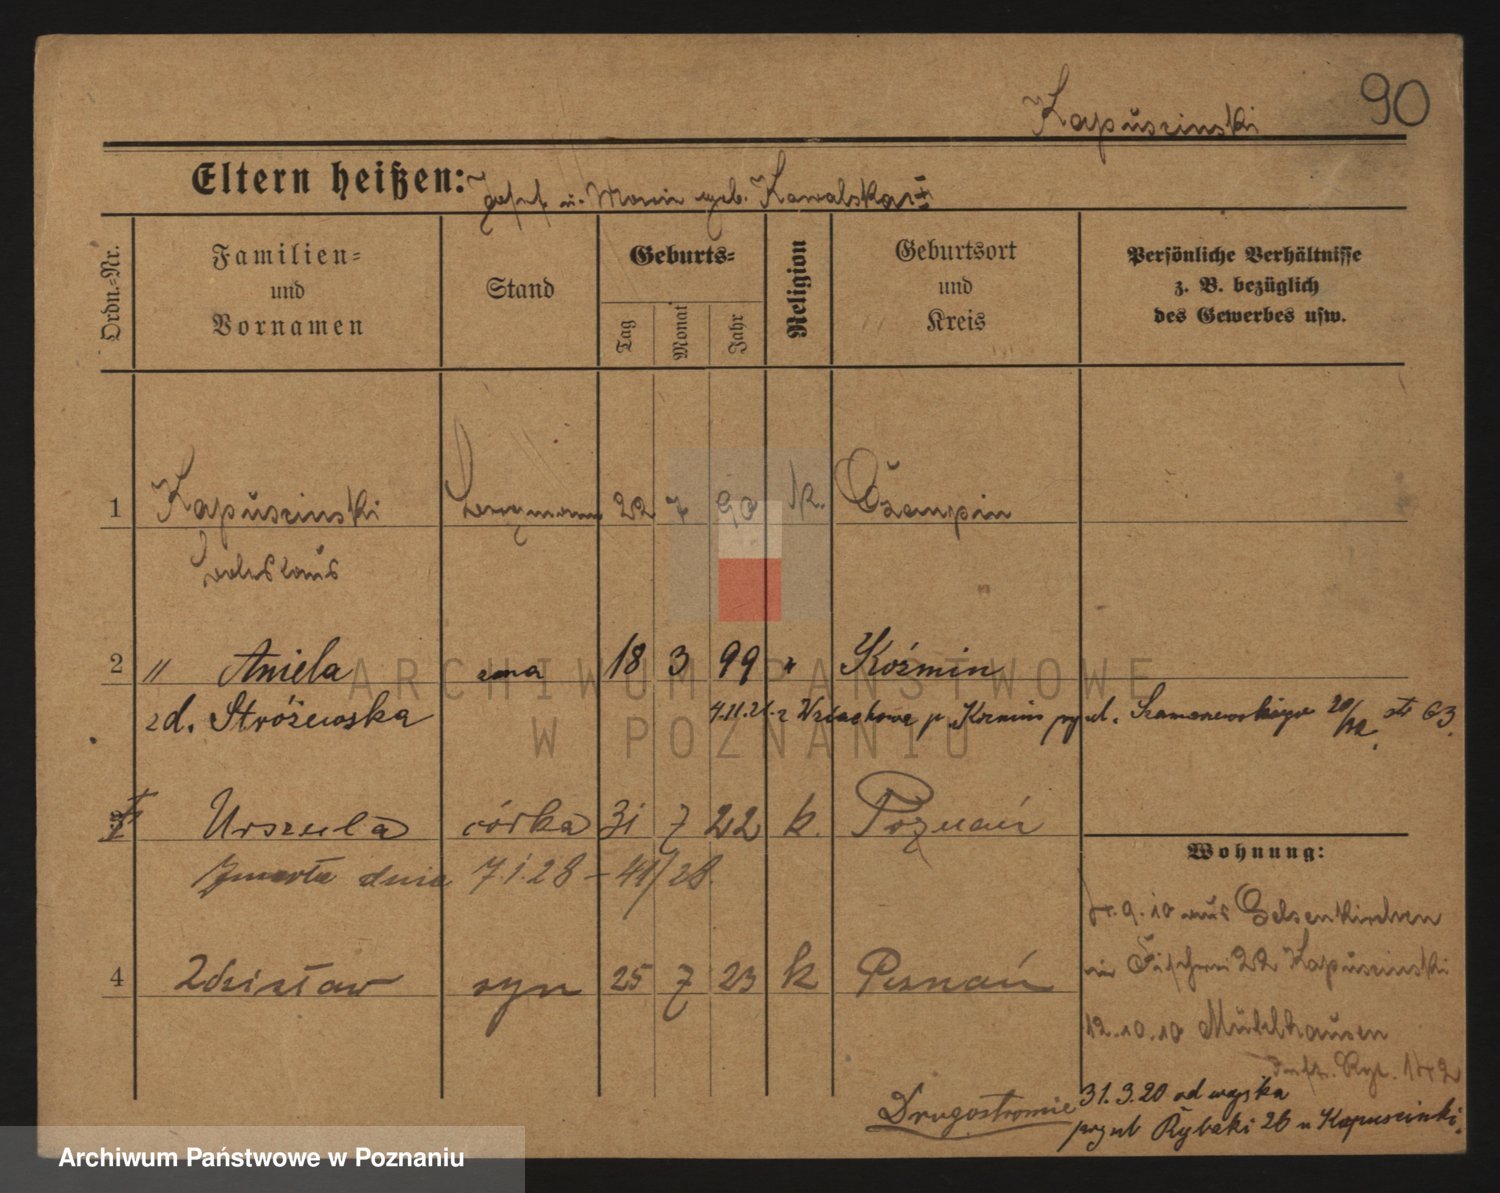 90
Kapuszinski
Eltern heißen: Josef u. Marie geb. Kawalska
Ordn.-Nr.
Familien-
und
Vornamen
Stand
Geburts-
Tag
Monat
Jahr
Religion
Geburtsort
und
Kreis
Persönliche Verhältnisse
z. B. bezüglich
des Gewerbes usw.
1 Kapuszinski Bergmann 22 7 90 k. Czempin
2 " Aniela żona 18 3 99 " Koźmin
zd. Stróżewska
4.11.21 z Wziachowa p. Kozmin przy ul. Szamarzewskiego 20/22 str 63.
3 Urszula córka 31 7 22 k. Poznań
Zmarła dnia 7.1.28 – 41/28.
4 Zdzisław syn 25 7 23 k Poznań
Wohnung:
9.10 aus Gelsenkirchen
Fischerei 22 Kapuszinski
12.10.10 Mühlhausen
Inft. Rgt.
Drugostronnie
31.3.20 od wojska
przy ul Rybaki 26 u Kapuscinski.
ARCHIWUM PAŃSTWOWE
W POZNANIU
Archiwum Państwowe w Poznaniu